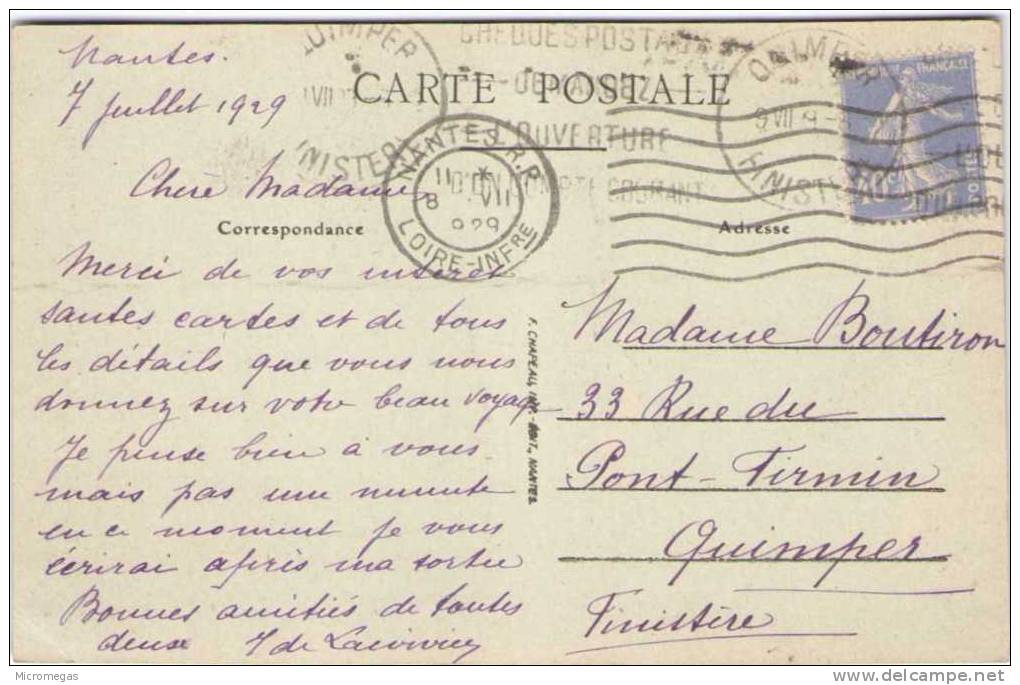 CARTE POSTALE
Nantes.
7 Juillet 1929
Chère Madame
Correspondance
Merci de vos intéres
santes cartes et de tous
les détails que vous nous
donnez sur votre beau voyage
Je pense bien à vous
mais pas une minute
en ce moment je vous
écrirai après ma sortie
Bonnes amitiés de toutes
deux
Adresse
Madame Boutiron
33 Rue du
Pont-Firmin
Quimper
Finistère
F. CHAPEAU, IMP.-EDIT., NANTES.
QUIMPER
FINISTERE
CHEQUES POSTAUX
DEMANDEZ
L'OUVERTURE
D'UN COMPTE COURANT
NANTES R.P.
11 *
8 VII
929
LOIRE-INFRE
QUIMPER
FINISTERE
Micromegas
delcampe.net